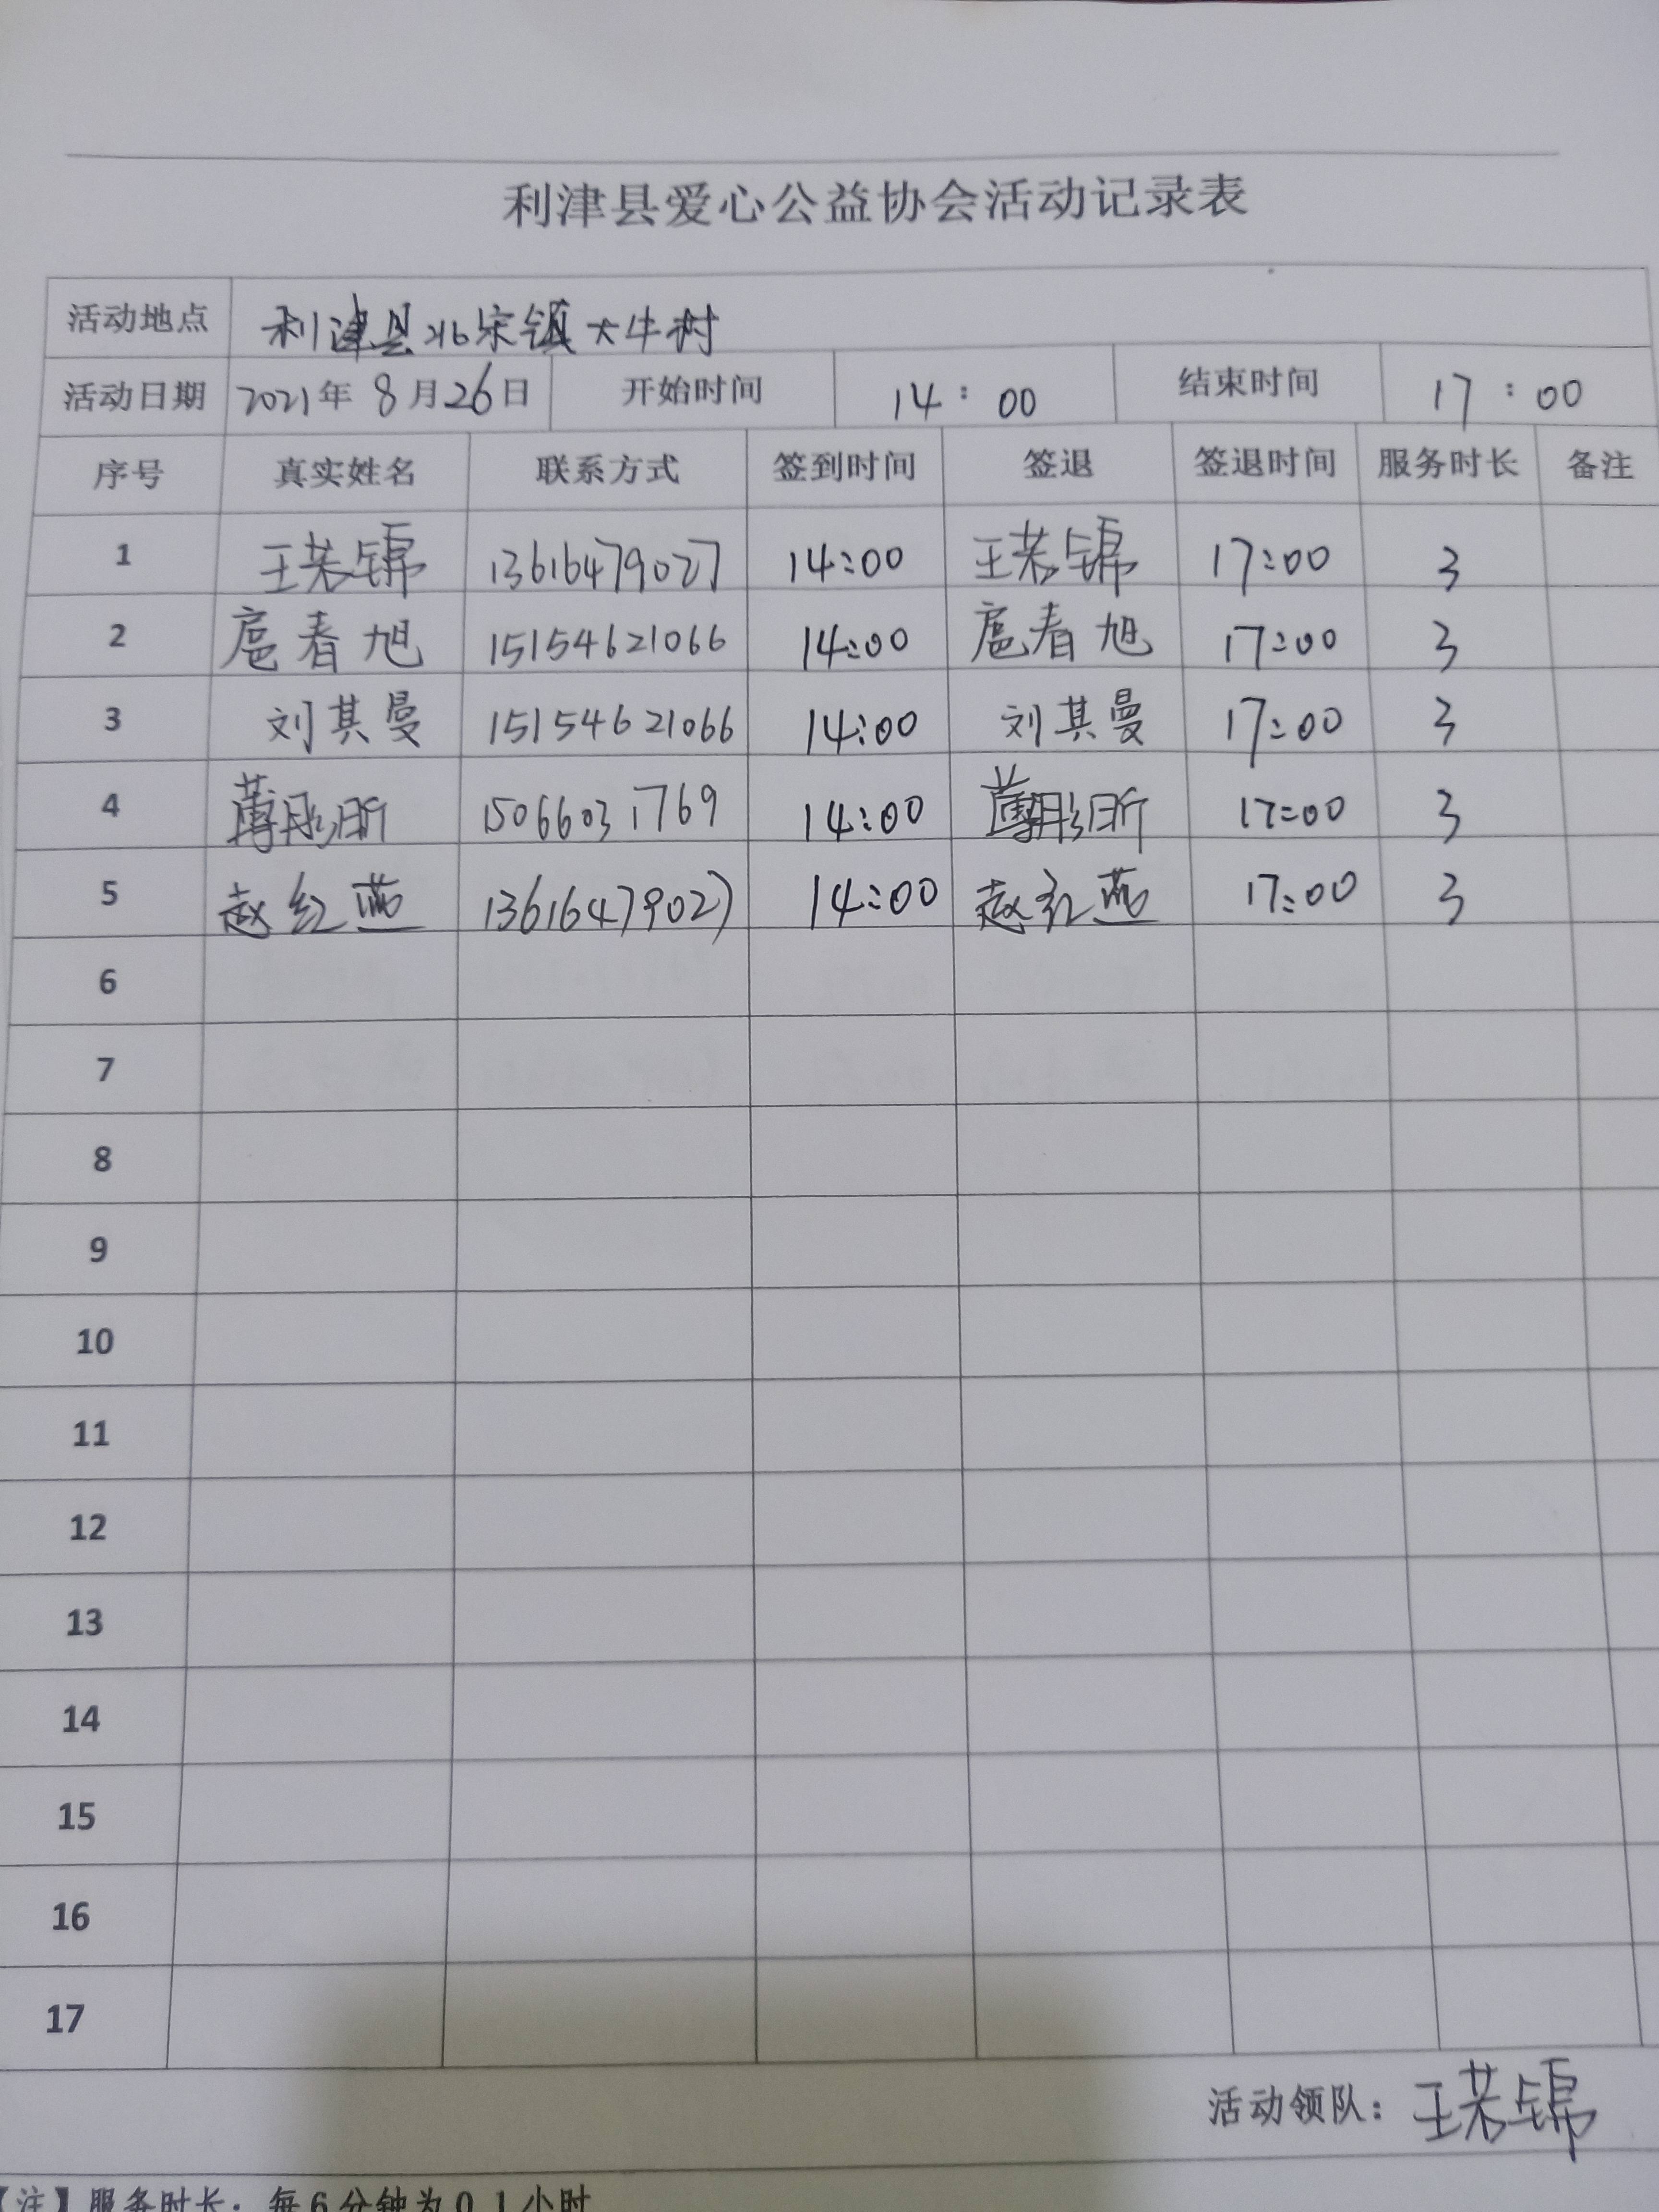 利津县爱心公益协会活动记录表
活动地点 利津县北宋镇大牛村
活动日期 2021年 8月26日 开始时间 14:00 结束时间 17:00
序号 真实姓名 联系方式 签到时间 签退 签退时间 服务时长 备注
1 王若锦 13616479027 14:00 王若锦 17:00 3
2 扈春旭 15154621066 14:00 扈春旭 17:00 3
3 刘其曼 15154621066 14:00 刘其曼 17:00 3
4 薄彤昕 15066031769 14:00 薄彤昕 17:00 3
5 赵红燕 13616479027 14:00 赵红燕 17:00 3
6
7
8
9
10
11
12
13
14
15
16
17
活动领队：王若锦
【注】服务时长：每6分钟为0.1小时